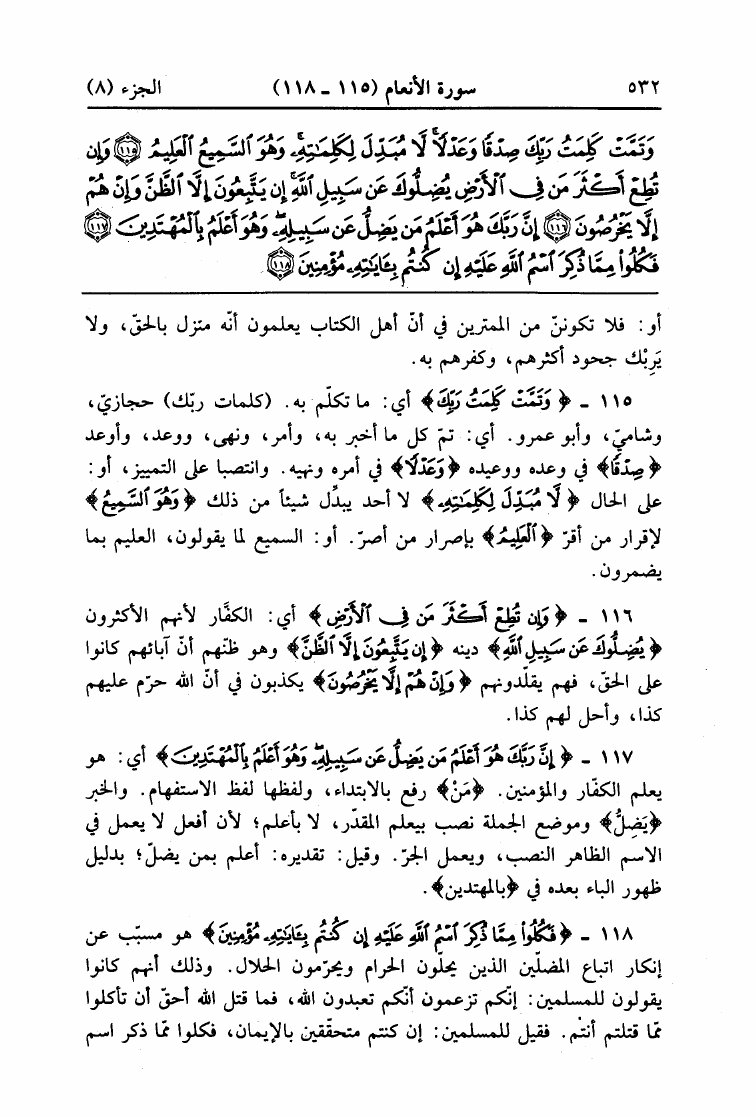 ٥٣٢ سورة الأنعام (١١٥ ـ ١١٨) الجزء (٨)
وَتَمَّتْ كَلِمَتُ رَبِّكَ صِدْقًا وَعَدْلًا ۚ لَّا مُبَدِّلَ لِكَلِمَـٰتِهِۦ ۚ وَهُوَ ٱلسَّمِيعُ ٱلْعَلِيمُ ﴿١١٥﴾ وَإِن
تُطِعْ أَكْثَرَ مَن فِى ٱلْأَرْضِ يُضِلُّوكَ عَن سَبِيلِ ٱللَّهِ ۚ إِن يَتَّبِعُونَ إِلَّا ٱلظَّنَّ وَإِنْ هُمْ
إِلَّا يَخْرُصُونَ ﴿١١٦﴾ إِنَّ رَبَّكَ هُوَ أَعْلَمُ مَن يَضِلُّ عَن سَبِيلِهِۦ ۖ وَهُوَ أَعْلَمُ بِٱلْمُهْتَدِينَ ﴿١١٧﴾
فَكُلُوا۟ مِمَّا ذُكِرَ ٱسْمُ ٱللَّهِ عَلَيْهِ إِن كُنتُم بِـَٔايَـٰتِهِۦ مُؤْمِنِينَ ﴿١١٨﴾
أو: فلا تكوننّ من الممترين في أنّ أهل الكتاب يعلمون أنّه منزل بالحقّ، ولا
يَرِبْك جحود أكثرهم، وكفرهم به.
١١٥ ـ ﴿وَتَمَّتْ كَلِمَتُ رَبِّكَ﴾ أي: ما تكلّم به. (كلمات ربّك) حجازيّ،
وشاميّ، وأبو عمرو. أي: تمّ كل ما أخبر به، وأمر، ونهى، ووعد، وأوعد
﴿صِدْقًا﴾ في وعده ووعيده ﴿وَعَدْلًا﴾ في أمره ونهيه. وانتصبا على التمييز، أو:
على الحال ﴿لَّا مُبَدِّلَ لِكَلِمَـٰتِهِۦ﴾ لا أحد يبدّل شيئاً من ذلك ﴿وَهُوَ ٱلسَّمِيعُ﴾
لإقرار من أقرّ ﴿ٱلْعَلِيمُ﴾ بإصرار من أصرّ. أو: السميع لما يقولون، العليم بما
يضمرون.
١١٦ ـ ﴿وَإِن تُطِعْ أَكْثَرَ مَن فِى ٱلْأَرْضِ﴾ أي: الكفّار لأنهم الأكثرون
﴿يُضِلُّوكَ عَن سَبِيلِ ٱللَّهِ﴾ دينه ﴿إِن يَتَّبِعُونَ إِلَّا ٱلظَّنَّ﴾ وهو ظنّهم أنّ آبائهم كانوا
على الحقّ، فهم يقلّدونهم ﴿وَإِنْ هُمْ إِلَّا يَخْرُصُونَ﴾ يكذبون في أنّ الله حرّم عليهم
كذا، وأحل لهم كذا.
١١٧ ـ ﴿إِنَّ رَبَّكَ هُوَ أَعْلَمُ مَن يَضِلُّ عَن سَبِيلِهِۦ ۖ وَهُوَ أَعْلَمُ بِٱلْمُهْتَدِينَ﴾ أي: هو
يعلم الكفّار والمؤمنين. ﴿مَنْ﴾ رفع بالابتداء، ولفظها لفظ الاستفهام. والخبر
﴿يَضِلُّ﴾ وموضع الجملة نصب بيعلم المقدّر، لا بأعلم؛ لأن أفعل لا يعمل في
الاسم الظاهر النصب، ويعمل الجرّ. وقيل: تقديره: أعلم بمن يضلّ؛ بدليل
ظهور الباء بعده في ﴿بالمهتدين﴾.
١١٨ ـ ﴿فَكُلُوا۟ مِمَّا ذُكِرَ ٱسْمُ ٱللَّهِ عَلَيْهِ إِن كُنتُم بِـَٔايَـٰتِهِۦ مُؤْمِنِينَ﴾ هو مسبّب عن
إنكار اتباع المضلّين الذين يحلّون الحرام ويحرّمون الحلال. وذلك أنهم كانوا
يقولون للمسلمين: إنّكم تزعمون أنّكم تعبدون الله، فما قتل الله أحقّ أن تأكلوا
ممّا قتلتم أنتم. فقيل للمسلمين: إن كنتم متحقّقين بالإيمان، فكلوا ممّا ذكر اسم